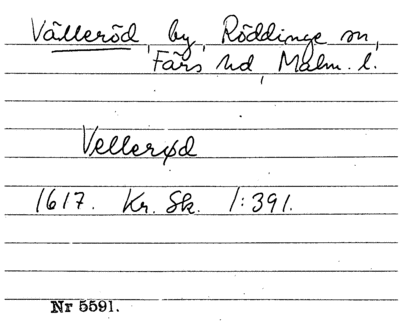 Välleröd, by, Röddinge sn,
Färs hd, Malm. l.
Vellerød
1617. Kr. Sk. 1:391.
Nr 5591.